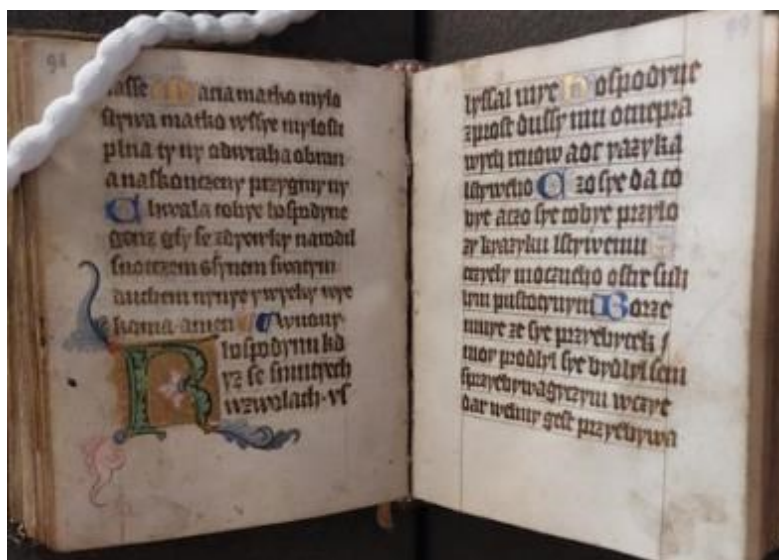 98
nasse Maria matko mylo
stywa matko wssye mylosti
plna ty ny odwraha obran
a naskonczeny przygmy ny
Chwala tobye hospodyne
genz gsy se zdyewky narodil
snotczem slynem swatym
duchem nynye ywyeky wye
koma amen
hospodynu kd
yz se smutyech
wzwolach vs
lyssal mye hospodyne
zprost dussy mu otnepra
wych rtuow a ot yazyka
lstyweho Czo sye da to
bye aczo sye tobye przylo
zy krazyku lstywemu
strzyely moczneho ostre suh
lym pustoczymy Borze
mnye ze sye przyebytek
moy prodlyl sye bydlyl sem
sprzyebywagyczymy wczye
dar welmy gest przyebywa